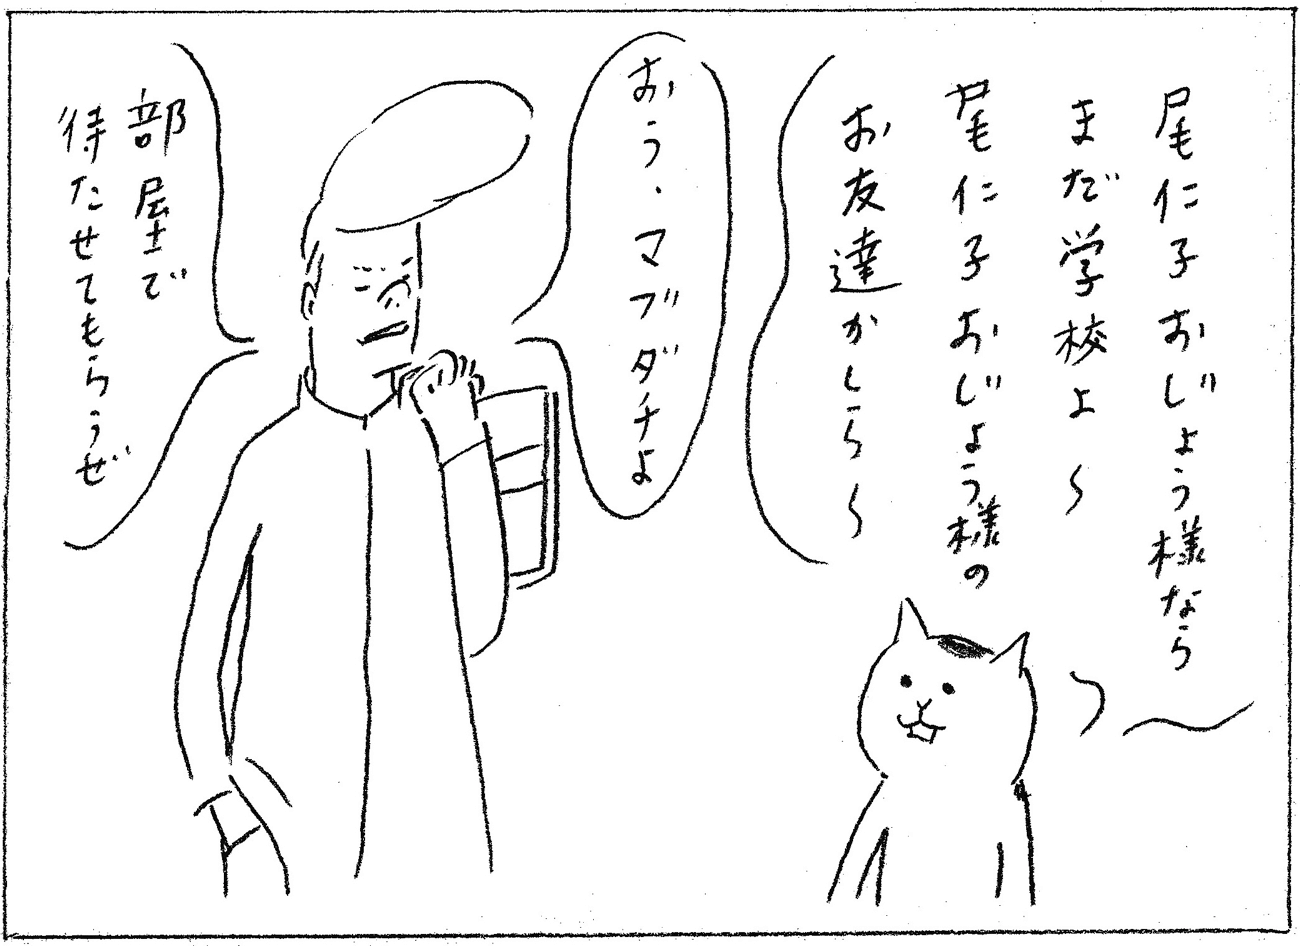 尾仁子おじょう様なら
まだ学校よ〜
尾仁子おじょう様の
お友達かしら〜
おう、マブダチよ
部屋で
待たせてもらうぜ